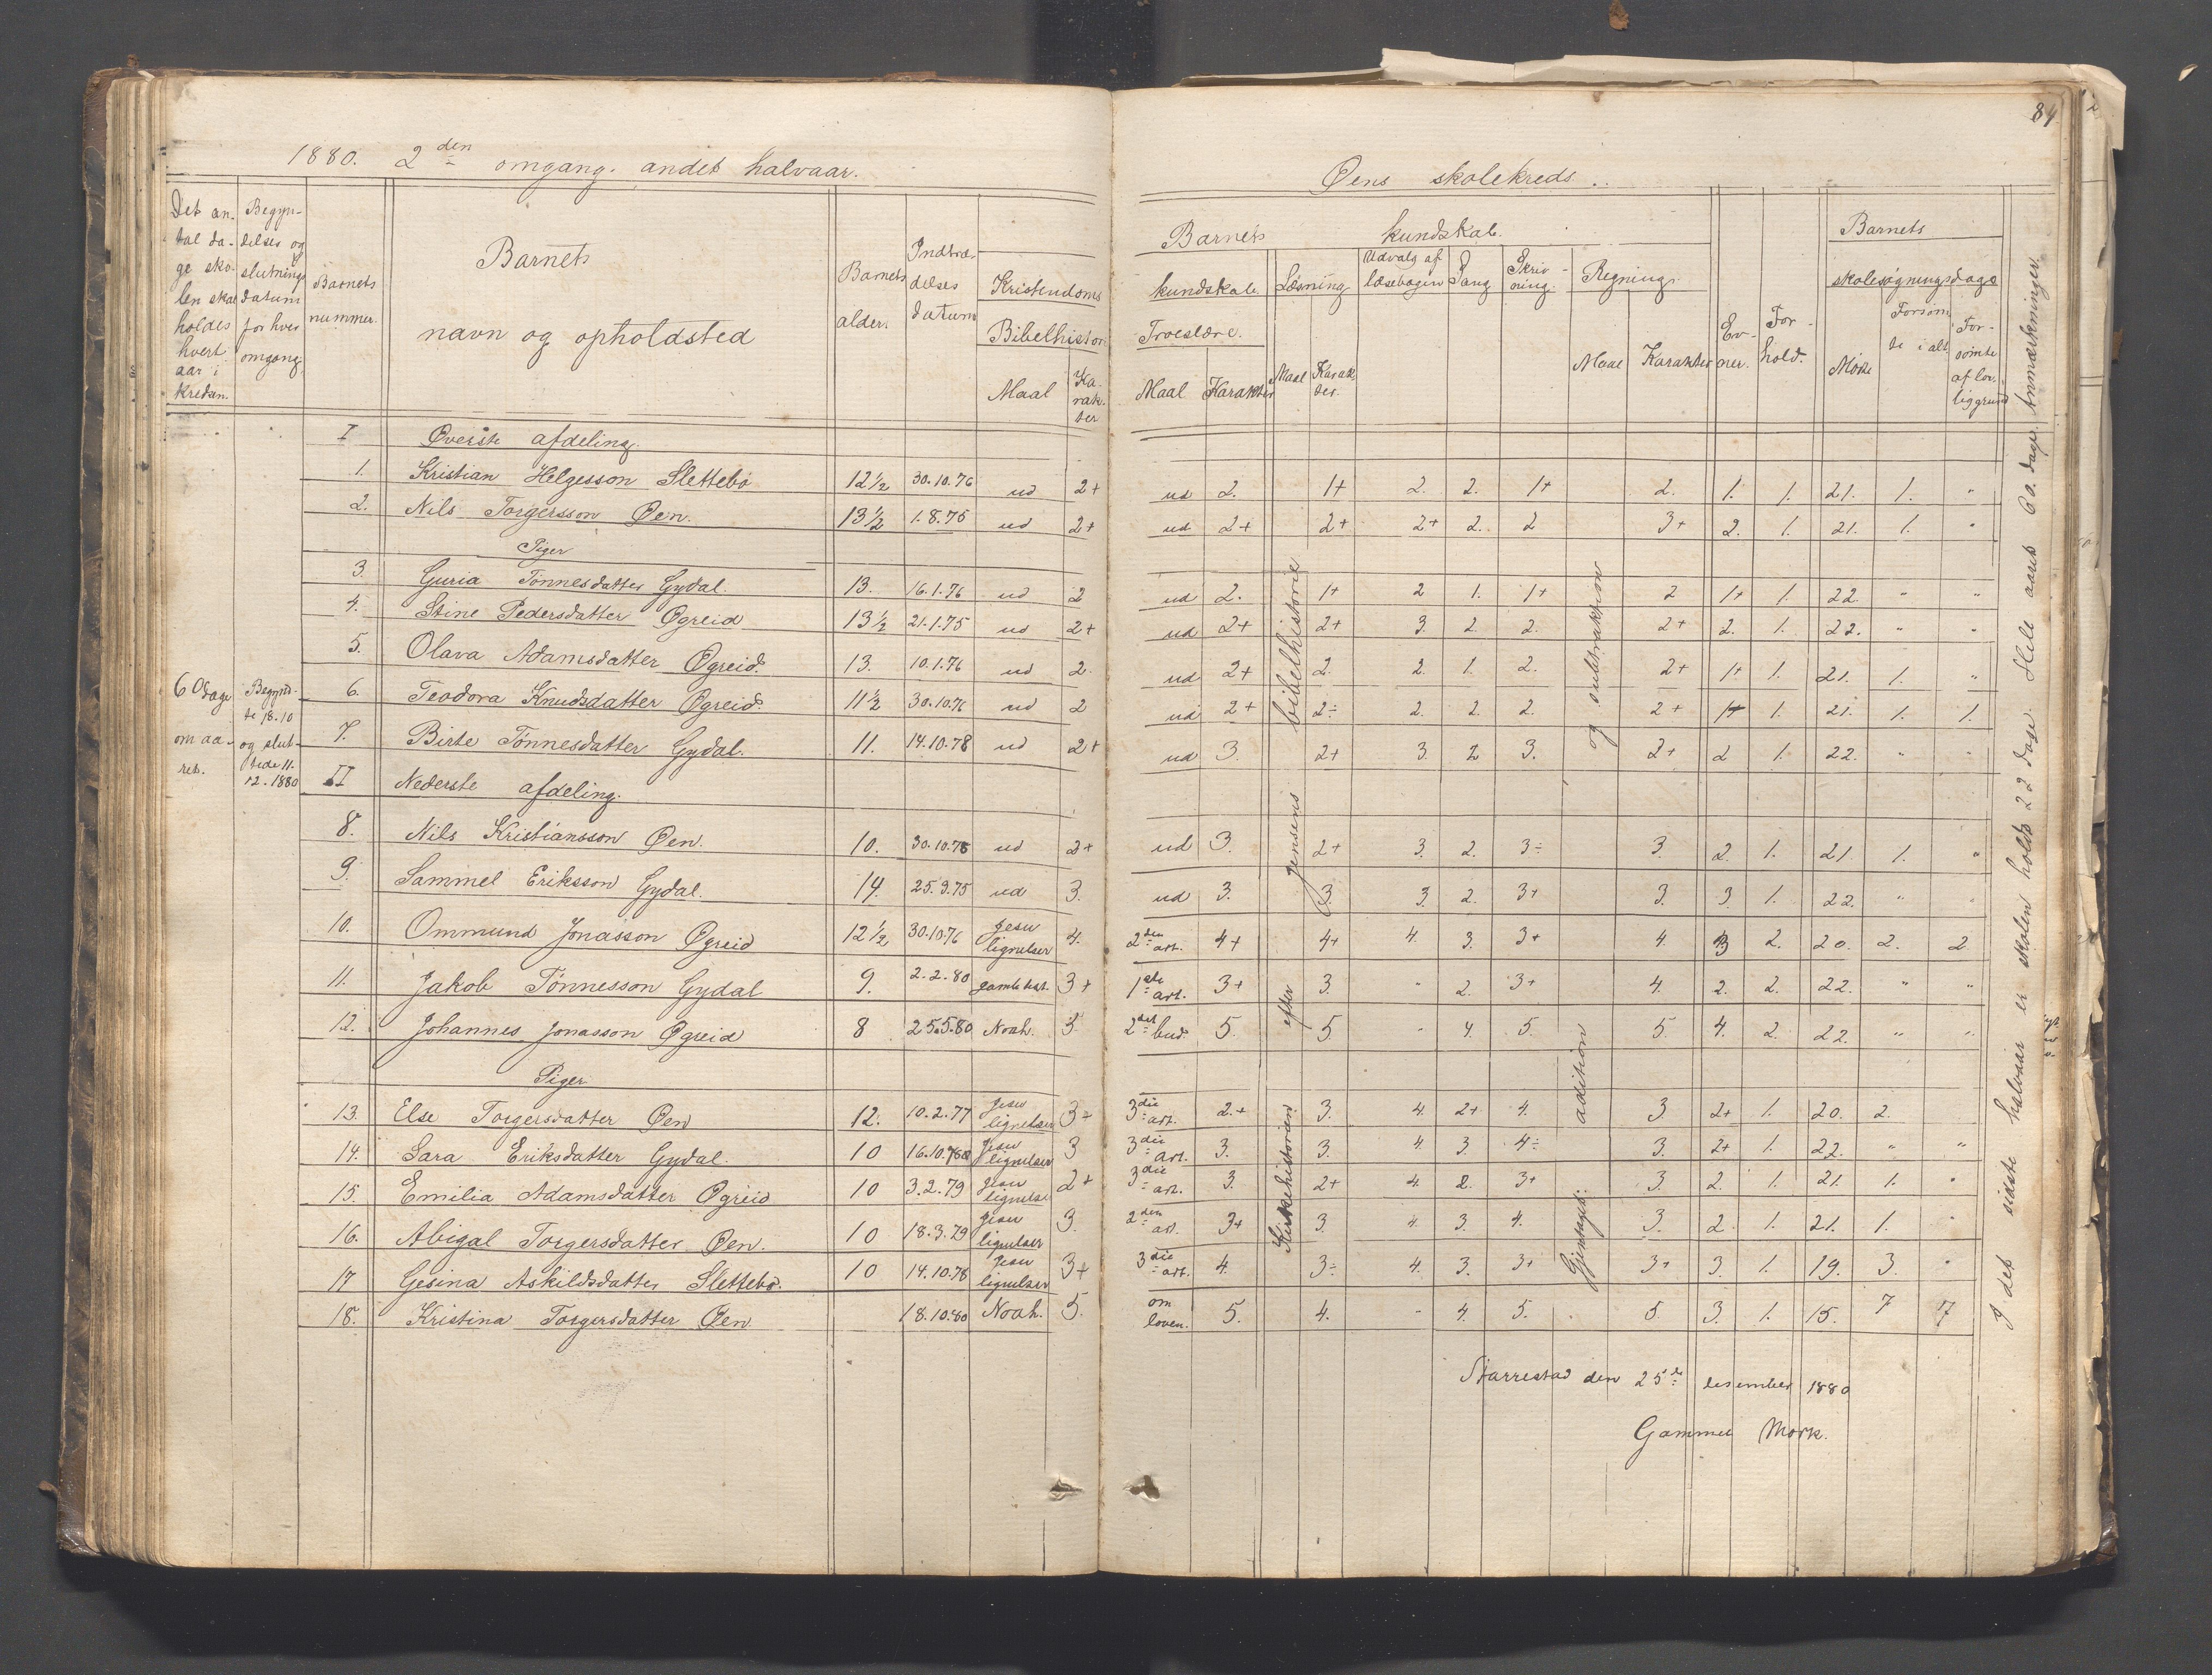 84
1880. 2den omgang. andet halvaar.
Øens skolekreds.
Det antal dage skolen skal holdes hvert aar i kredsen.
Begyndelses og slutnings datum for hver omgang.
Barnets nummer.
Barnets navn og opholdsted
Barnets alder.
Indtrædelses datum
Kristendoms
Bibelhistor.
Maal
Karakter
Barnets kundskab.
kundskab. Læsning Udvalg af læsebogen Sang Skrivning. Regning.
Troeslære.
Maal Karakter Maal Karakter. Maal Karakter
Evner.
Forhold.
Barnets skolesøgningsdage
Møtte Forsømte i alt Forsømte af lovlig grund
Anmærkninger.
60 dage om aaret.
Begyndte 18.10 og sluttede 11.12.1880
I Øverste afdeling.
1. Kristian Helgesson Slettebø 12½ 30.10.76 ud 2+ ud 2. 1+ 2. 2. 1+ 2. 1. 1. 21. 1. "
2. Nils Torgersson Øen. 13½ 1.8.75 ud 2+ ud 2+ 2+ 2+ 2. 2 3+ 2. 1. 21. 1. "
Piger
3. Guria Tønnesdatter Gydal. 13. 16.1.76 ud 2 ud 2. 1+ 2 1. 1+ 2 1+ 1. 22. " "
4. Stine Pedersdatter Øgreid 13½ 21.1.75 ud 2+ ud 2+ 2+ 3. 2. 2. 2+ 2. 1. 22. " "
5. Olava Adamsdatter Øgreid. 13. 10.1.76 ud 2. ud 2+ 2. 2. 1. 2. 2+ 1+ 1. 21. 1. "
6. Teodora Knudsdatter Øgreid. 11½ 30.10.76 ud 2 ud 2+ 2÷ 2. 2. 2. 2+ 1+ 1. 21. 1. 1.
7. Birte Tønnesdatter Gydal. 11. 14.10.78 ud 2+ ud 3. 2+ 3. 2 3. 2+ 2 1. 22. " "
II Nederste afdeling.
8. Nils Kristiansson Øen. 10. 30.10.76 ud 2+ ud 3. 2+ 3. 2. 3÷ 3. 2. 1. 21. 1. "
9. Sammel Eriksson Gydal. 14. 25.9.75 ud 3. ud 3. 3. 3. 2. 3+ 3. 3. 1. 22. " "
10. Ommund Jonasson Øgreid 12½ 30.10.76 Jesu lignelser 4. 2den art. 4+ 4+ 4. 3. 3+ 4. 3 2. 20. 2. 2
11. Jakob Tønnesson Gydal 9. 2.2.80 gamle test. 3+ 1ste art. 3+ 3. " 2. 3+ 4. 2. 2. 22. " "
12. Johannes Jonasson Øgreid 8 25.5.80 Noah. 5. 2det bud. 5. 5. " 4. 5. 5 4. 2. 22. " "
Piger
13. Else Torgersdatter Øen 12. 10.2.77 Jesu lignelser 3+ 3die art. 2+ 3. 4. 2+ 4. 3 2+ 1. 20. 2.
14. Sara Eriksdatter Gydal. 10 16.10.78 Jesu lignelser 3 3die art. 3. 3. 4. 3. 4÷ 3. 2+ 1. 22. " "
15. Emilia Adamsdatter Øgreid 10 3.2.79 Jesu lignelse 2+ 3die art. 3. 2+ 4. 2. 3+ 3. 2. 1. 21. 1. "
16. Abigal Torgersdatter Øen. 10 18.3.79 Jesu lignelser 3. 2den art. 3+ 3. 4. 3. 4. 3. 2. 1. 21. 1. "
17 Gesina Askildsdatter Slettebø. 10 14.10.78 Jesu lignelser 3+ 3die art. 4. 3÷ 4. 3. 3+ 3+ 3. 1. 19. 3. "
18. Kristina Torgersdatter Øen 18.10.80 Noah. 5. om loven. 5. 4. - 4. 5. 5 3. 1. 15. 7 7
Kirkehistorien efter Jensens bibelhistorie
Gjentaget: adition og subtraktion
I det sidste halvaar er skolen holdt 22 dage. Hele aaret 60. dage.
Starrestad den 25de desember 1880
Gammel Mork.